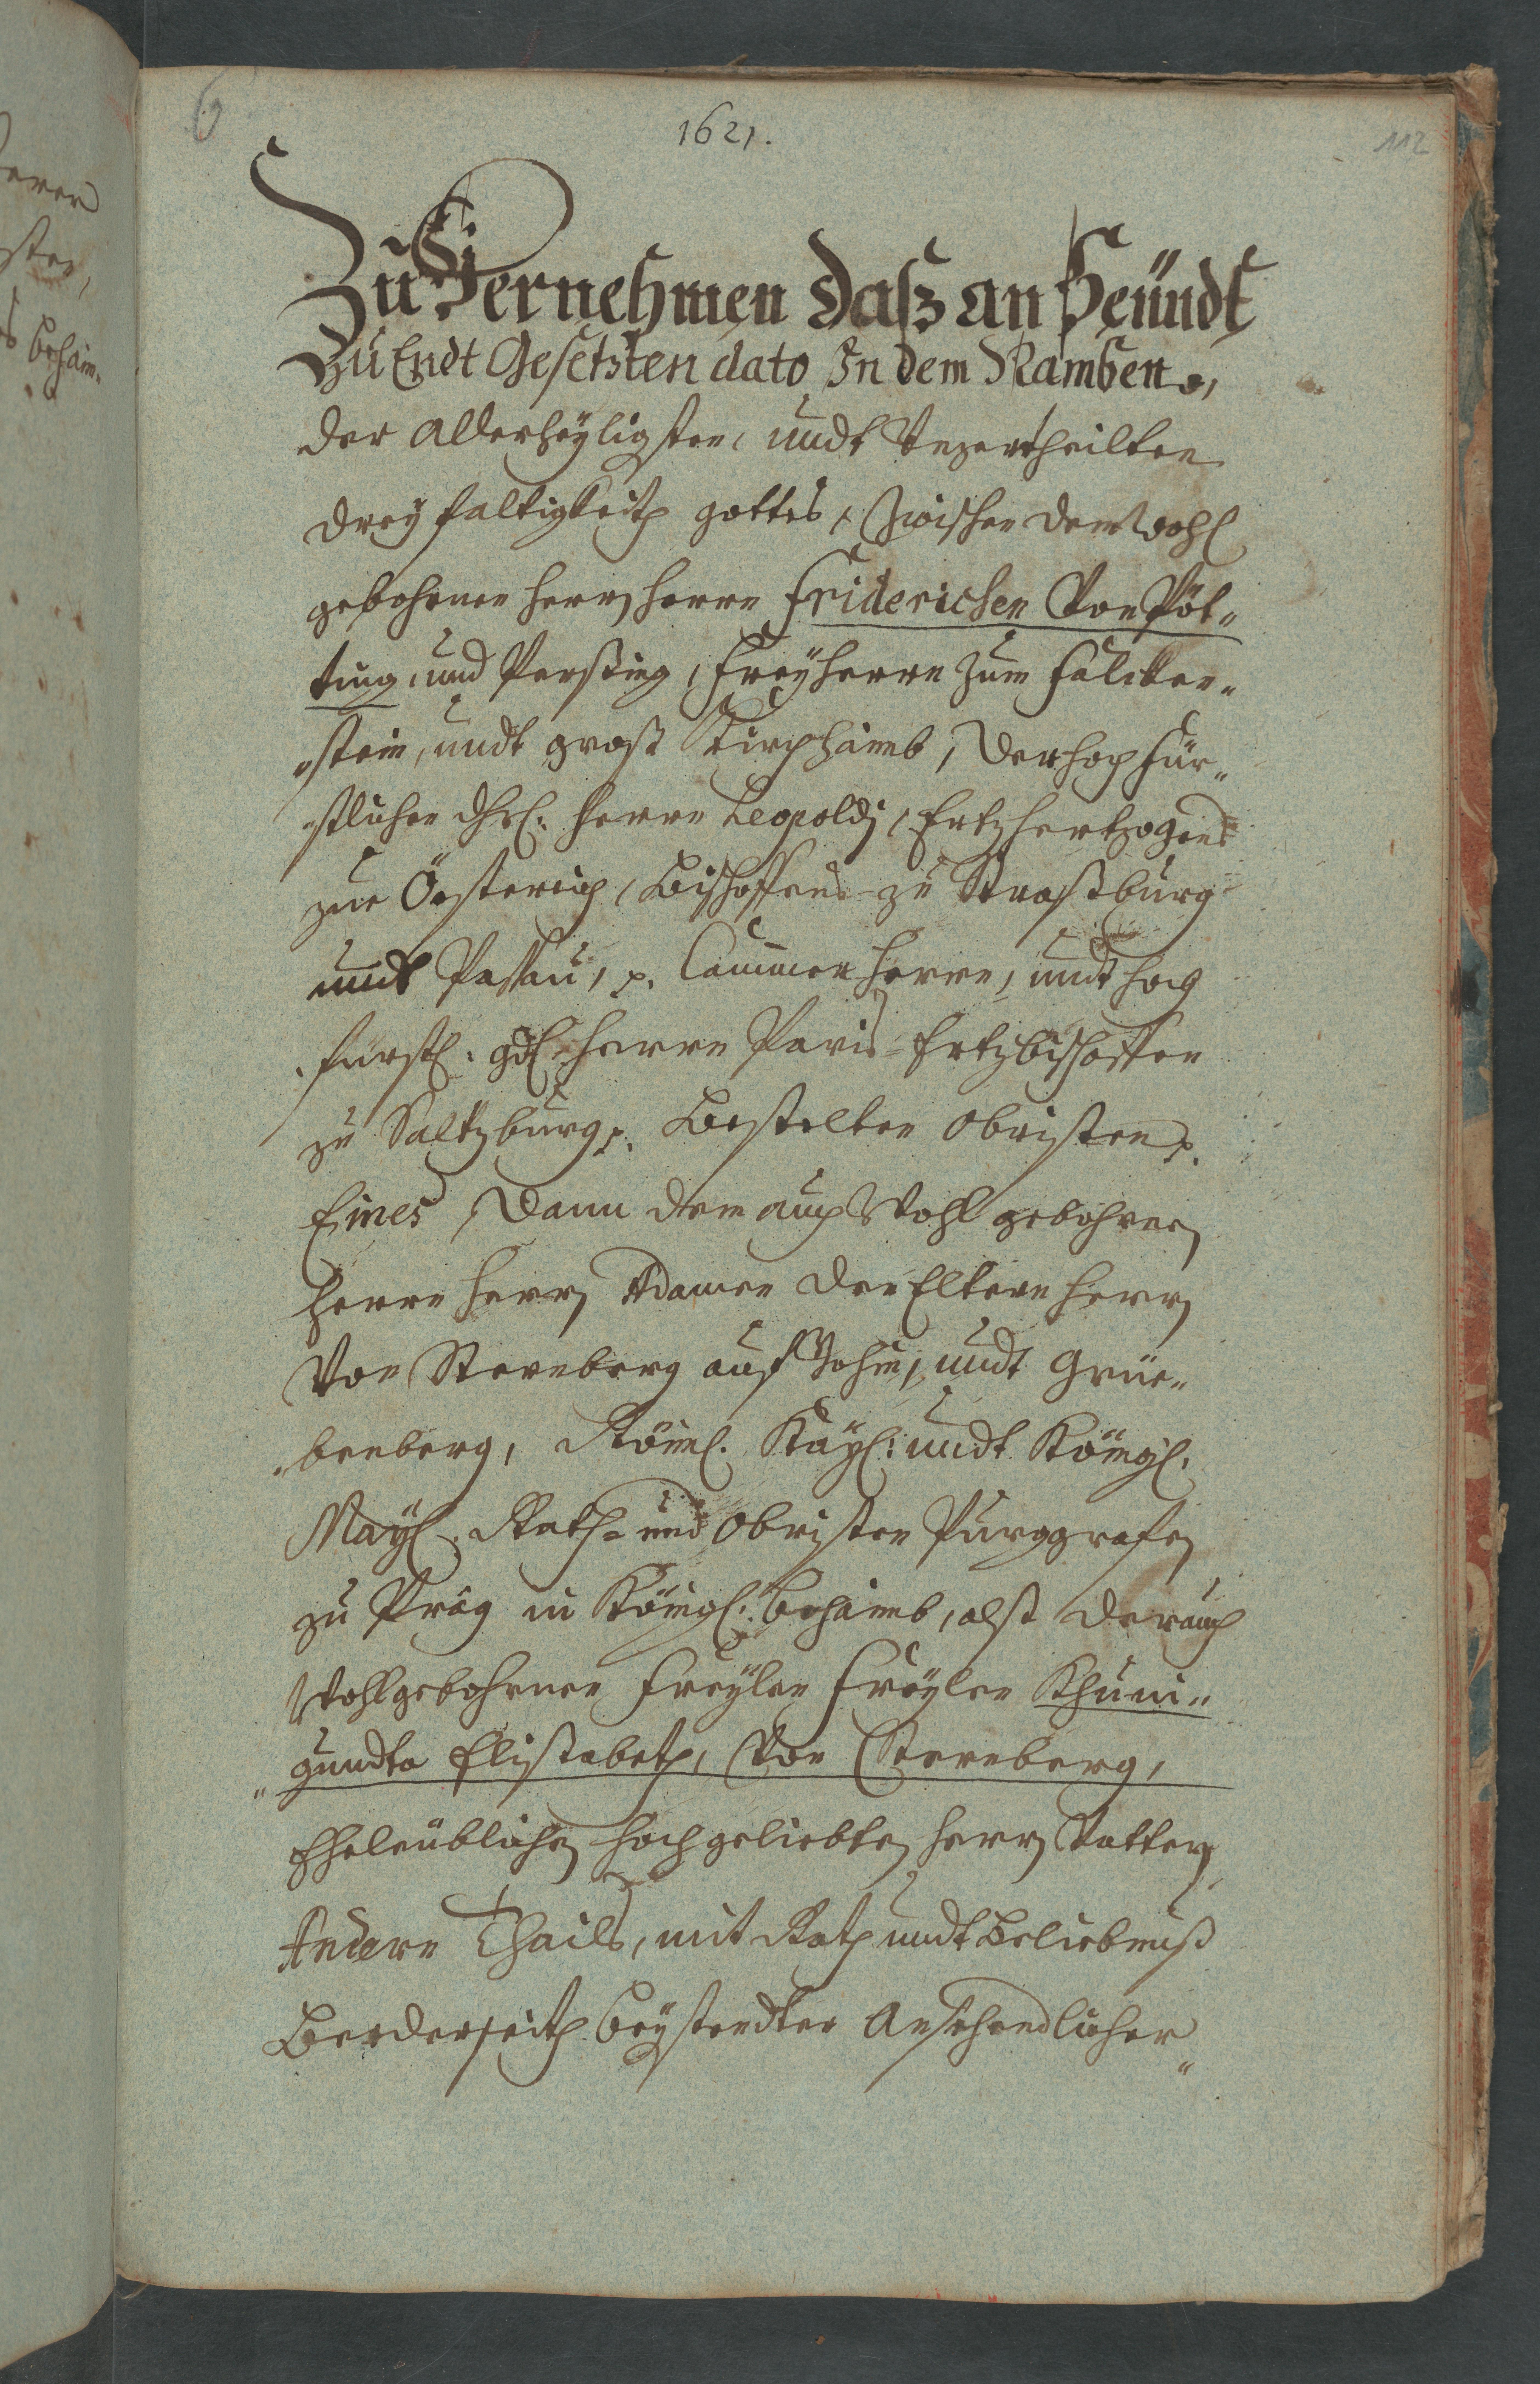 6
1621.
112
Zu Vernehmen daß an Heündt
Zu Endt Gesetzten dato In dem Namben,
der Allerheyligsten, undt Unzertheilten
dreyfaltigkeith gottes, Zwischen dem Wohl
gebohrnen herrn herrn Friderichen Von Pöt„
ting, und Persing, Freyherrn zum Falcken„
„stein, undt groß Kirchhaimb, der hochfür„
„stlichen dhl: herrn Leopoldj, Ertzhertzogens
zue Össterich, Bischoffens zu Straßburg
undt Passau, p. Cammerherrn, undt hoch
fürstl: gdl: herrn Paris Ertzbischoffen
zu Saltzburg p. Bestelten Obristen p.
Eines, Dann dem auch Wohl gebohrnen
herrn herrn Adamen den Eltern herrn
Von Sternberg auf Bohin, undt Grüe„
„benberg, Röml. Kayl: undt Königl.
Mayl. Rath- und Obristen Purggrafen
zu Prag in Königl: Behaimb, alß der auch
Wohlgebohrnen Freylen Freylen Khuni„
„gundta Elisabeth, Von Sternberg,
Eheleüblichen hochgeliebten herrn Vattern,
Andern Thails, mit Rath undt Beliebnuß
Beederseith beystendter Ansehendlicher„